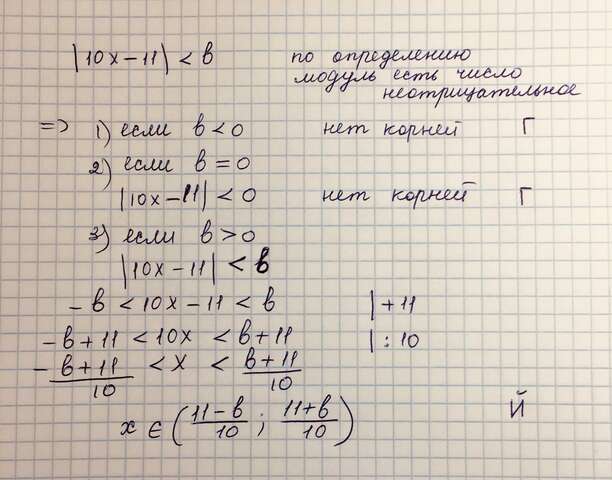 |10x-11| < в по определению
модуль есть число
неотрицательное
=> 1) если в < 0 нет корней Г
2) если в = 0
|10x-11| < 0 нет корней Г
3) если в > 0
|10x-11| < в
-в < 10x-11 < в |+11
-в+11 < 10x < в+11 |:10
-в+11/10 < x < в+11/10
x ∈ (11-в/10 ; 11+в/10) Й